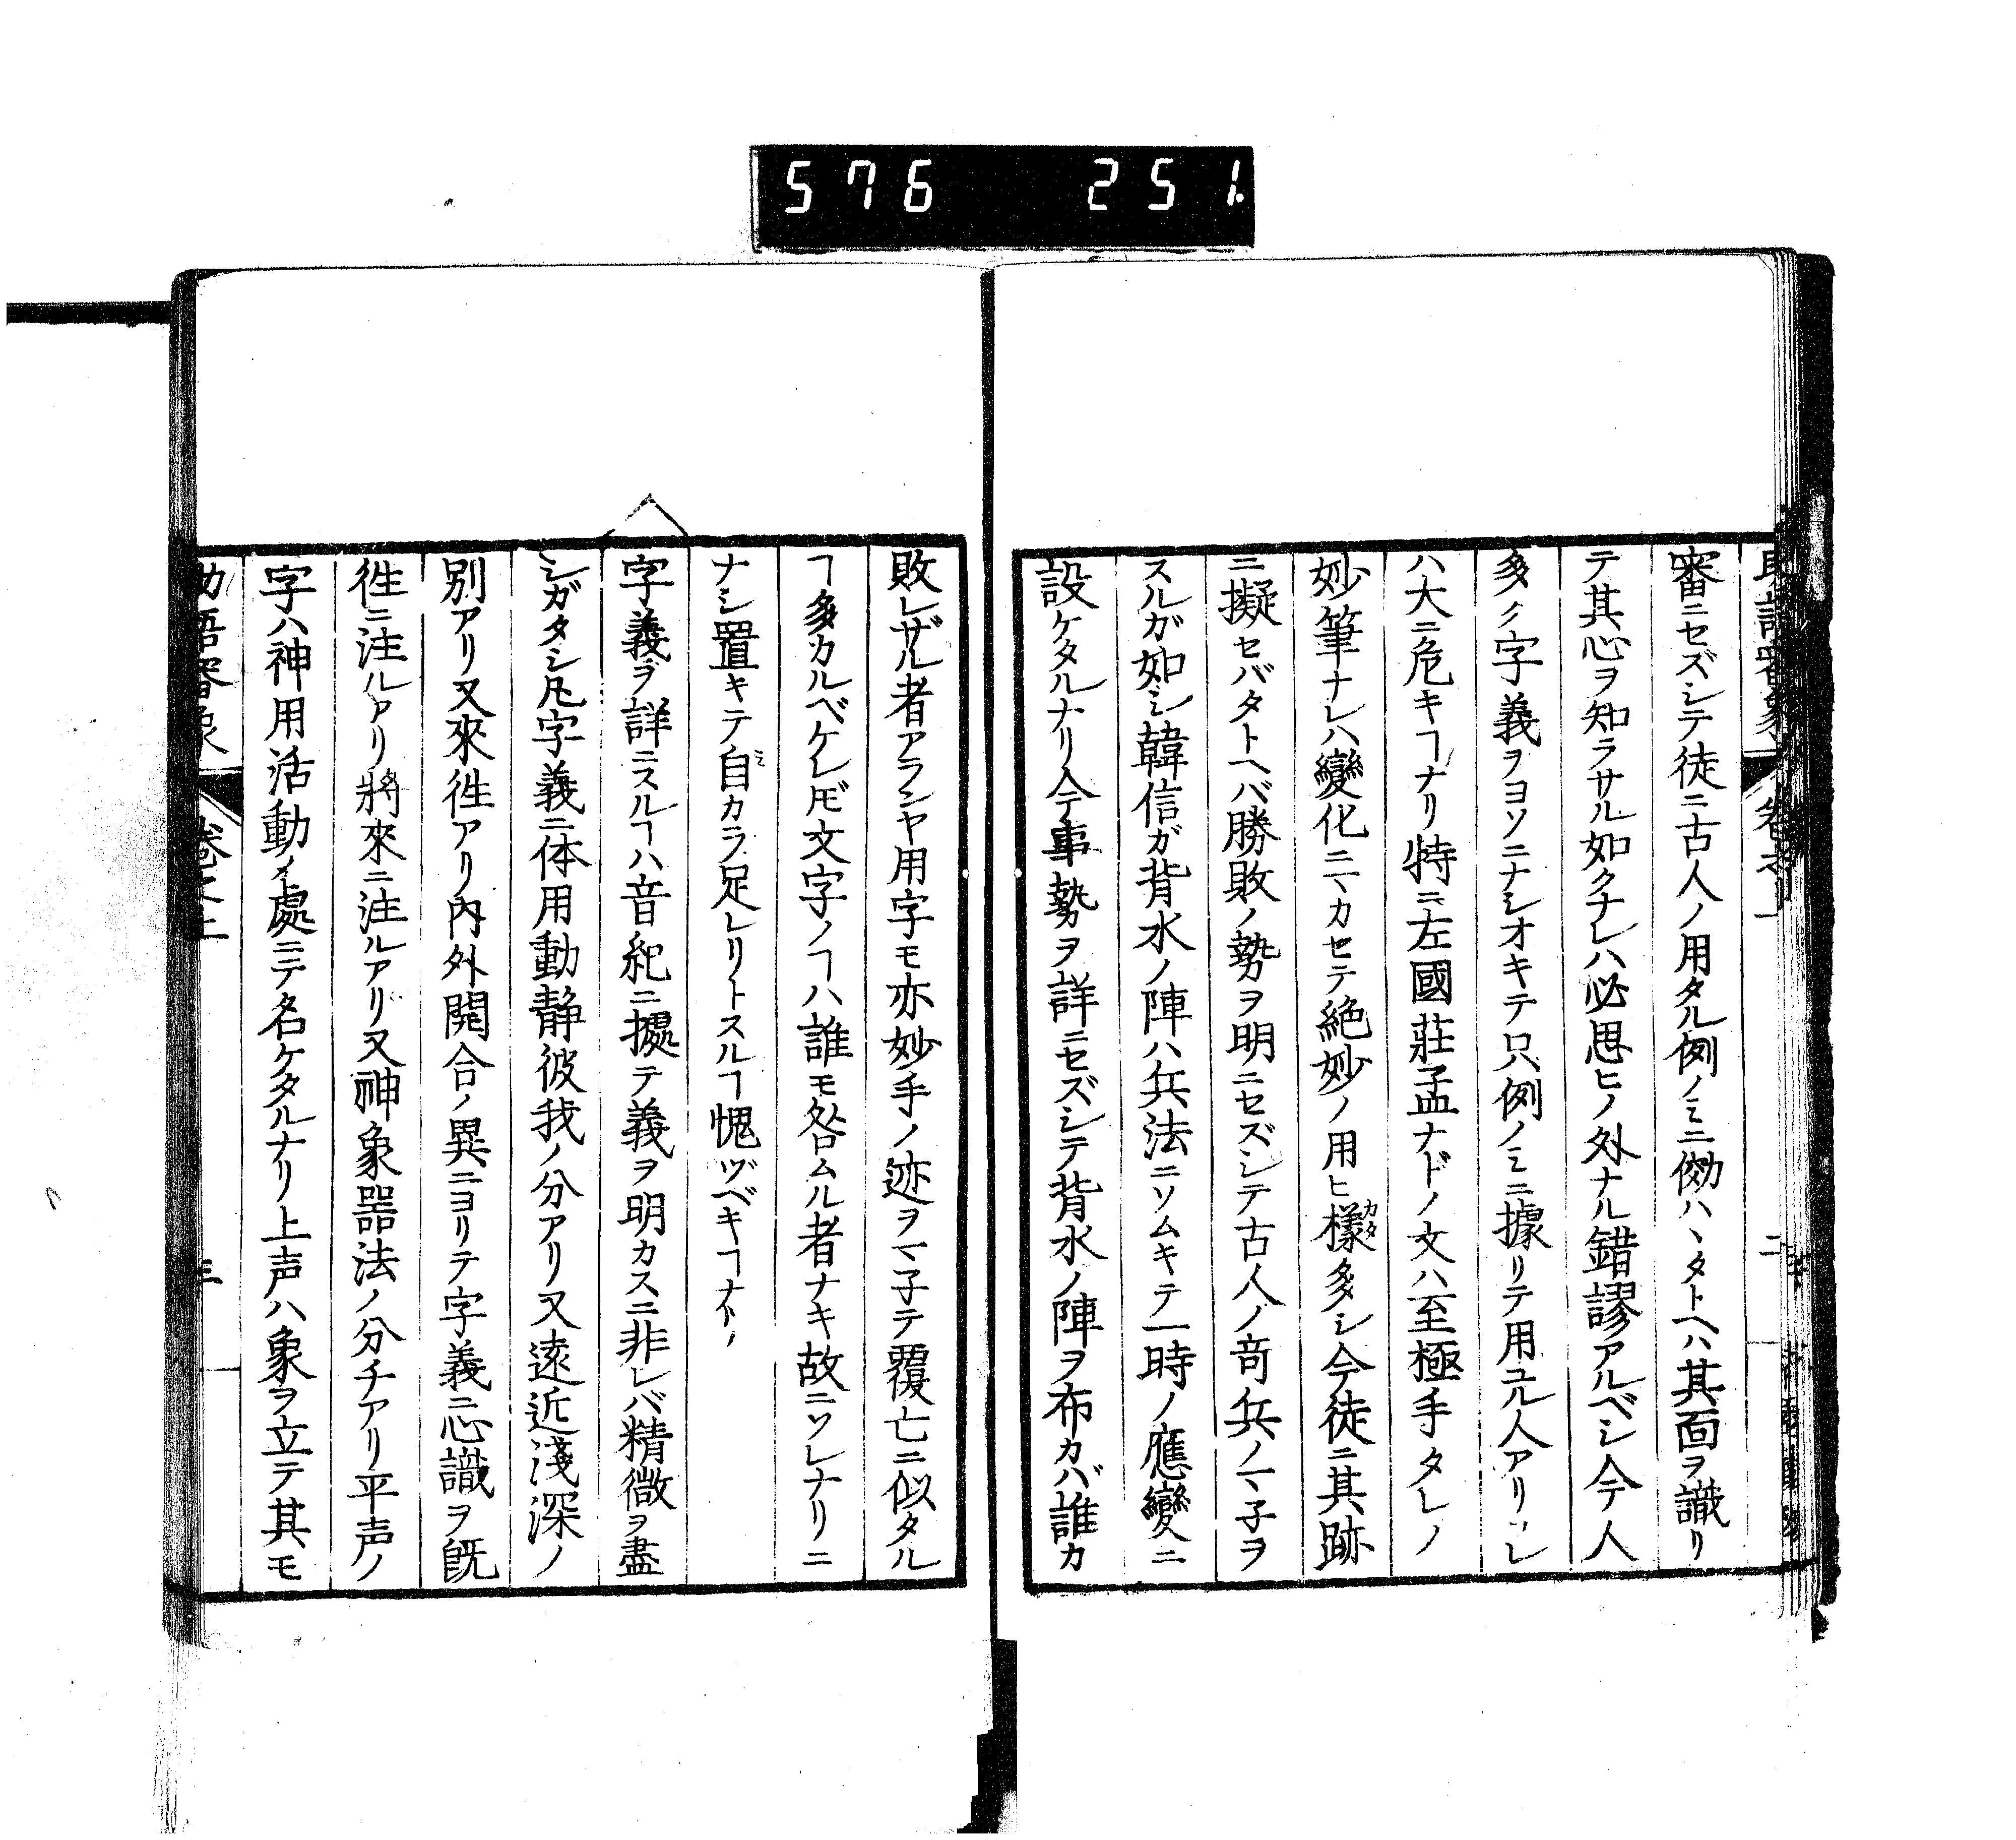 576 251.
審ニセズシテ徒ニ古人ノ用タル例ノミニ傚ハヽタトヘハ其面ヲ識リ
テ其心ヲ知ラサル如クナレハ必思ヒノ外ナル錯謬アルベシ今テ人
多ク字義ヲヨソニナシオキテ只例ノミニ據リテ用ユル人アリコレ
ハ大ニ危キヿナリ特ニ左國莊孟ナドノ文ハ至極手タレノ
妙筆ナレハ變化ニマカセテ絶妙ノ用ヒ樣カタ多シ今徒ニ其跡
ニ擬セバタトヘバ勝敗ノ勢ヲ明ニセズシテ古人ノ竒兵ノマ子ヲ
スルガ如シ韓信ガ背水ノ陣ハ兵法ニソムキテ一時ノ應變ニ
設ケタルナリ今テ事勢ヲ詳ニセズシテ背水ノ陣ヲ布カバ誰カ
敗レザル者アランヤ用字モ亦妙手ノ迹ヲマ子テ覆亡ニ似タル
ヿ多カルベケレ𪜈文字ノヿハ誰モ咎ムル者ナキ故ニソレナリニ
ナシ置キテ自ミカラ足レリトスルヿ愧ヅベキヿナリ
字義ヲ詳ニスルヿハ音紀ニ據テ義ヲ明カスニ非レバ精微ヲ盡
シガタシ凡字義ニ体用動静彼我ノ分アリ又遠近淺深ノ
別アリ又來徃アリ内外開合ノ異ニヨリテ字義ニ心識ヲ旣
徃ニ注ルアリ將來ニ注ルアリ又神象器法ノ分チアリ平声ノ
字ハ神用活動ノ處ニテ名ケタルナリ上声ハ象ヲ立テ其モ
助語審象 卷之上 三